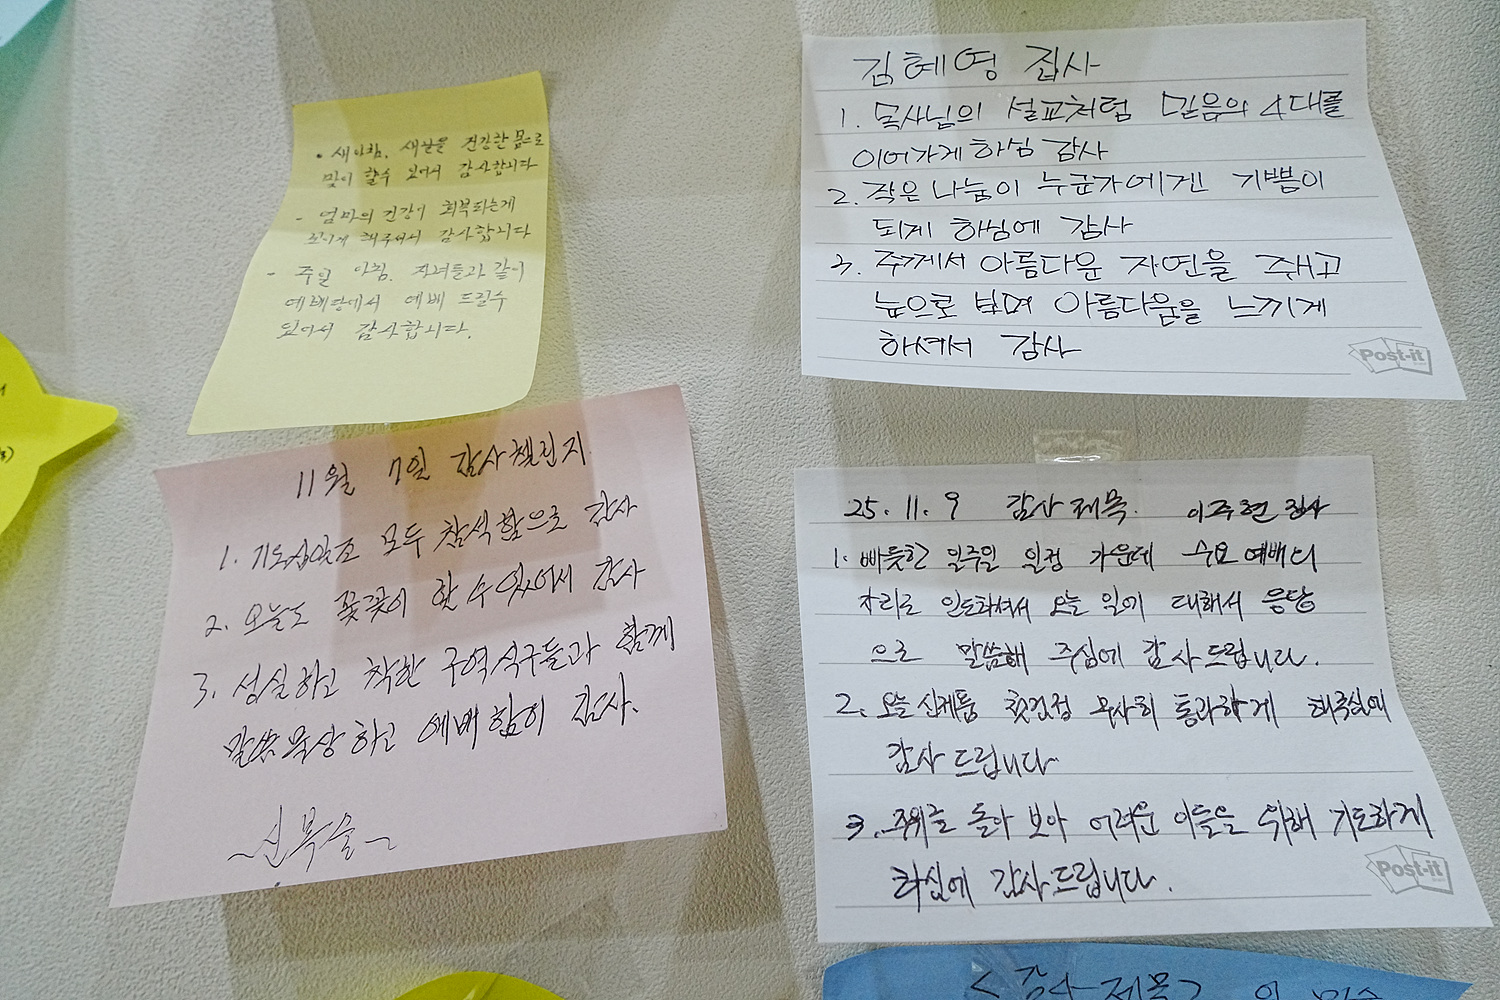 • 새아침, 새날을 건강한 몸으로
맞이 할수 있어서 감사합니다
- 엄마의 건강이 회복되는게
보이게 해주셔서 감사합니다
- 주일 아침, 자녀들과 같이
예배당에서 예배 드릴수
있어서 감사합니다.
김혜영 집사
1. 목사님의 설교처럼 믿음의 4대를
이어가게 하심 감사
2. 작은 나눔이 누군가에게 기쁨이
되게 하심에 감사
3. 주께서 아름다운 자연을 주시고
눈으로 보며 아름다움을 느끼게
하셔서 감사
Post-it
11월 7일 감사챌린지
1. 모두 참석함으로 감사
2. 오늘도 꽃꽂이 할 수 있어서 감사
3. 성실하고 착한 구역식구들과 함께
말씀묵상하고 예배함이 감사.
25. 11. 9 감사제목. 이주현 집사
1. 빠듯한 일주일 일정 가운데 수요예배의
자리로 인도하셔서 오늘 일에 대해서 응답
으로 말씀해 주심에 감사드립니다.
2. 오늘 신제품 첫검정 무사히 통과하게 해주심에
감사드립니다
3. 주위를 돌아 보아 어려운 이들을 위해 기도하게
하심에 감사드립니다.
Post-it
<감사제목>